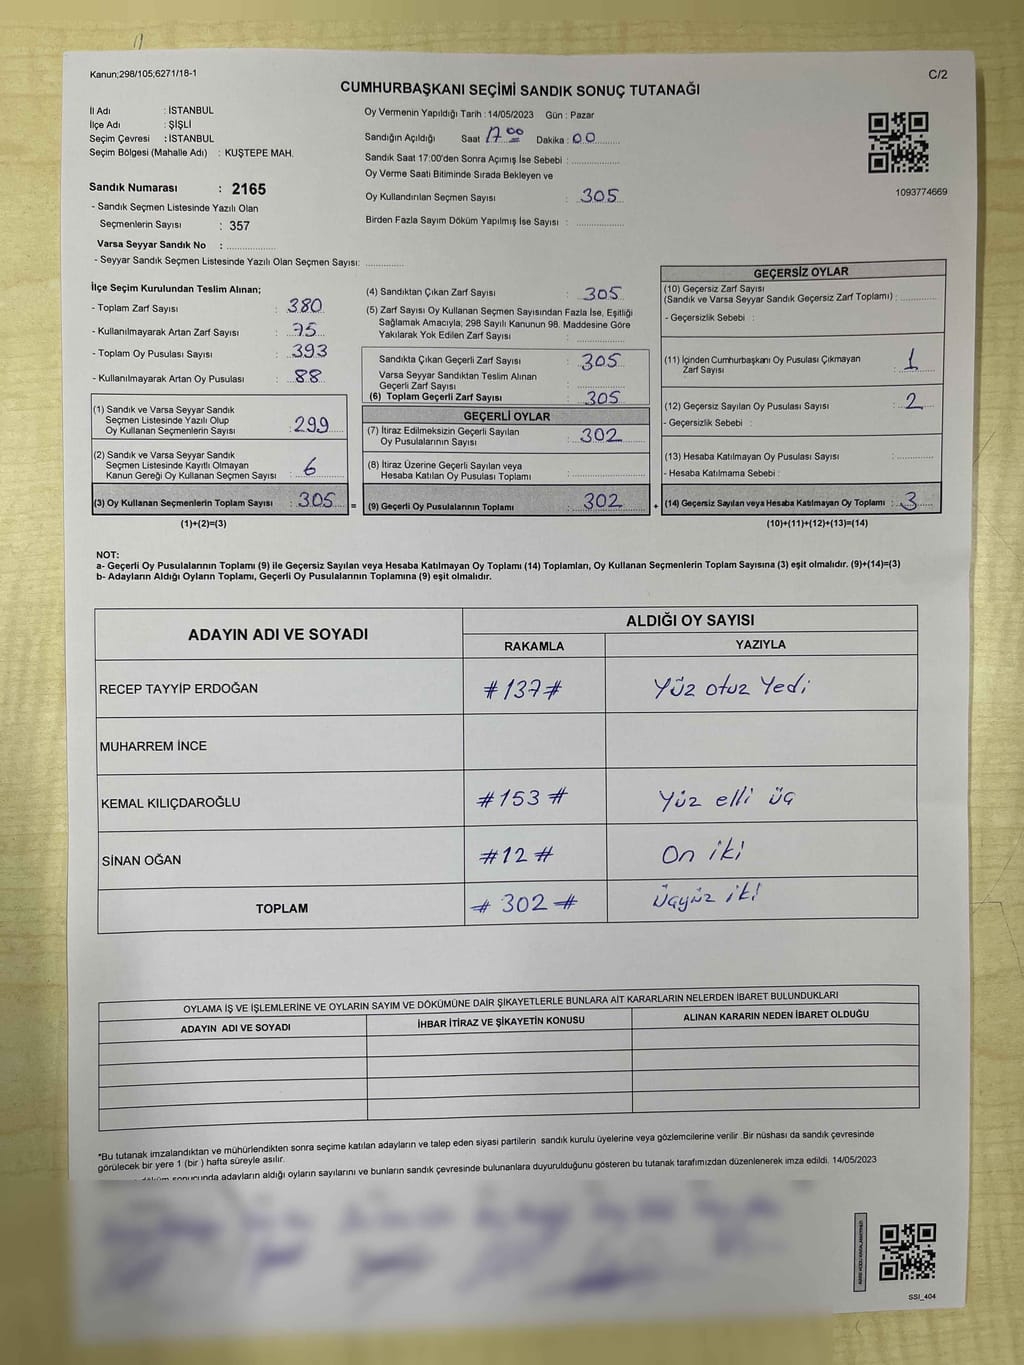 Kanun;298/105;6271/18-1
C/2
CUMHURBAŞKANI SEÇİMİ SANDIK SONUÇ TUTANAĞI
İl Adı : İSTANBUL
İlçe Adı : ŞİŞLİ
Seçim Çevresi : İSTANBUL
Seçim Bölgesi (Mahalle Adı) : KUŞTEPE MAH.
Sandık Numarası : 2165
- Sandık Seçmen Listesinde Yazılı Olan
Seçmenlerin Sayısı : 357
Varsa Seyyar Sandık No : ................
- Seyyar Sandık Seçmen Listesinde Yazılı Olan Seçmen Sayısı: ............
Oy Vermenin Yapıldığı Tarih : 14/05/2023 Gün : Pazar
Sandığın Açıldığı Saat 17.00 Dakika : 00
Sandık Saat 17:00'den Sonra Açımış İse Sebebi : ................
Oy Verme Saati Bitiminde Sırada Bekleyen ve
Oy Kullandırılan Seçmen Sayısı : 305
Birden Fazla Sayım Döküm Yapılmış İse Sayısı : ................
1093774669
İlçe Seçim Kurulundan Teslim Alınan;
- Toplam Zarf Sayısı : 380
- Kullanılmayarak Artan Zarf Sayısı : 75
- Toplam Oy Pusulası Sayısı : 393
- Kullanılmayarak Artan Oy Pusulası : 88
(1) Sandık ve Varsa Seyyar Sandık
Seçmen Listesinde Yazılı Olup
Oy Kullanan Seçmenlerin Sayısı : 299
(2) Sandık ve Varsa Seyyar Sandık
Seçmen Listesinde Kayıtlı Olmayan
Kanun Gereği Oy Kullanan Seçmen Sayısı : 6
(3) Oy Kullanan Seçmenlerin Toplam Sayısı : 305 =
(1)+(2)=(3)
(4) Sandıktan Çıkan Zarf Sayısı : 305
(5) Zarf Sayısı Oy Kullanan Seçmen Sayısından Fazla İse, Eşitliği
Sağlamak Amacıyla, 298 Sayılı Kanunun 98. Maddesine Göre
Yakılarak Yok Edilen Zarf Sayısı : ................
Sandıkta Çıkan Geçerli Zarf Sayısı : 305
Varsa Seyyar Sandıktan Teslim Alınan
Geçerli Zarf Sayısı : ................
(6) Toplam Geçerli Zarf Sayısı : 305
GEÇERLİ OYLAR
(7) İtiraz Edilmeksizin Geçerli Sayılan
Oy Pusulalarının Sayısı : 302
(8) İtiraz Üzerine Geçerli Sayılan veya
Hesaba Katılan Oy Pusulası Toplamı : ................
(9) Geçerli Oy Pusulalarının Toplamı : 302 +
GEÇERSİZ OYLAR
(10) Geçersiz Zarf Sayısı
(Sandık ve Varsa Seyyar Sandık Geçersiz Zarf Toplamı) : ............
- Geçersizlik Sebebi :
(11) İçinden Cumhurbaşkanı Oy Pusulası Çıkmayan
Zarf Sayısı : 1
(12) Geçersiz Sayılan Oy Pusulası Sayısı : 2
- Geçersizlik Sebebi :
(13) Hesaba Katılmayan Oy Pusulası Sayısı : ............
- Hesaba Katılmama Sebebi :
(14) Geçersiz Sayılan veya Hesaba Katılmayan Oy Toplamı : 3
(10)+(11)+(12)+(13)=(14)
NOT:
a- Geçerli Oy Pusulalarının Toplamı (9) ile Geçersiz Sayılan veya Hesaba Katılmayan Oy Toplamı (14) Toplamları, Oy Kullanan Seçmenlerin Toplam Sayısına (3) eşit olmalıdır. (9)+(14)=(3)
b- Adayların Aldığı Oyların Toplamı, Geçerli Oy Pusulalarının Toplamına (9) eşit olmalıdır.
ADAYIN ADI VE SOYADI
ALDIĞI OY SAYISI
RAKAMLA YAZIYLA
RECEP TAYYİP ERDOĞAN #137# Yüz otuz Yedi
MUHARREM İNCE
KEMAL KILIÇDAROĞLU #153# Yüz elli üç
SİNAN OĞAN #12# On iki
TOPLAM #302# Üçyüz iki
OYLAMA İŞ VE İŞLEMLERİNE VE OYLARIN SAYIM VE DÖKÜMÜNE DAİR ŞİKAYETLERLE BUNLARA AİT KARARLARIN NELERDEN İBARET BULUNDUKLARI
ADAYIN ADI VE SOYADI İHBAR İTİRAZ VE ŞİKAYETİN KONUSU ALINAN KARARIN NEDEN İBARET OLDUĞU
*Bu tutanak imzalandıktan ve mühürlendikten sonra seçime katılan adayların ve talep eden siyasi partilerin sandık kurulu üyelerine veya gözlemcilerine verilir. Bir nüshası da sandık çevresinde
görülecek bir yere 1 (bir ) hafta süreyle asılır.
sonucunda adayların aldığı oyların sayılarını ve bunların sandık çevresinde bulunanlara duyurulduğunu gösteren bu tutanak tarafımızdan düzenlenerek imza edildi. 14/05/2023
SSI_404